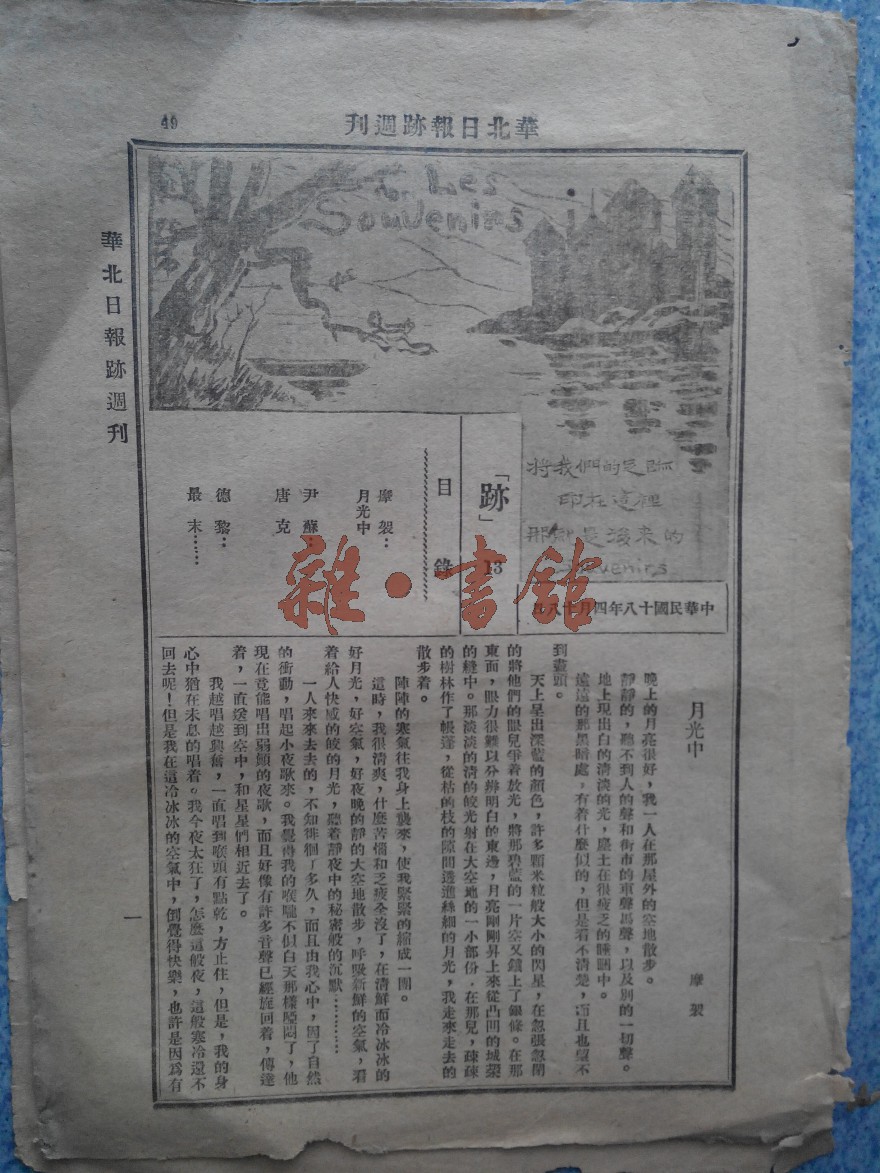 華北日報跡週刊
49
華北日報跡週刊
Les
Souvenirs
將我們的足跡
印在這裡
那就是後來的
Souvenirs
中華民國十八年四月十八日
「跡」 13
目錄
摩袈：
月光中
尹蘇：
唐克
德黎：
最末………
雜·書館
月光中
摩袈
晚上的月亮很好，我一人在那屋外的空地散步。
靜靜的，聽不到人的聲和街市的車聲馬聲，以及別的一切聲。
地上現出白的清淡的光，塵土在很疲乏的睡眠中。
遠遠的那黑暗處，有着什麼似的，但是看不清楚，而且也望不
到盡頭。
天上呈出深藍的顏色，許多顆米粒般大小的閃星，在忽張忽閉
的將他們的眼兒爭着放光，將那碧藍的一片空又鑲上了銀條。在那
東面，眼力很難以分辨明白的東邊，月亮剛剛昇上來從凸凹的城
的縫中。那淡淡的清的皎光射在大空地的一小部份，在那兒，疎疎
的樹林作了帳蓬，從枯的枝的隙間透進絲細的月光，我走來走去的
散步着。
陣陣的寒氣往我身上襲來，使我緊緊的縮成一團。
這時，我很清爽，什麼苦惱和乏疲全沒了，在清鮮而冷冰冰的
好月光，好空氣，好夜晚的靜的大空地散步，呼吸新鮮的空氣，看
着給人快感的皎的月光，聽着靜夜中的秘密般的沉默…………
一人來來去去的，不知徘徊了多久，而且由我心中，因了自然
的衝動，唱起小夜歌來。我覺得我的喉嚨不似白天那樣啞悶了，他
現在竟能唱出弱顫的夜歌，而且好像有許多音聲已經旋回着，傳達
着，一直送到空中，和星星們相近去了。
我越唱越興奮，一直唱到喉頭有點乾，方止住，但是，我的身
心中猶在未息的唱着。我今夜太狂了，怎麼這般夜，這般寒冷還不
回去呢！但是我在這冷冰冰的空氣中，倒覺得快樂，也許是因為有
一